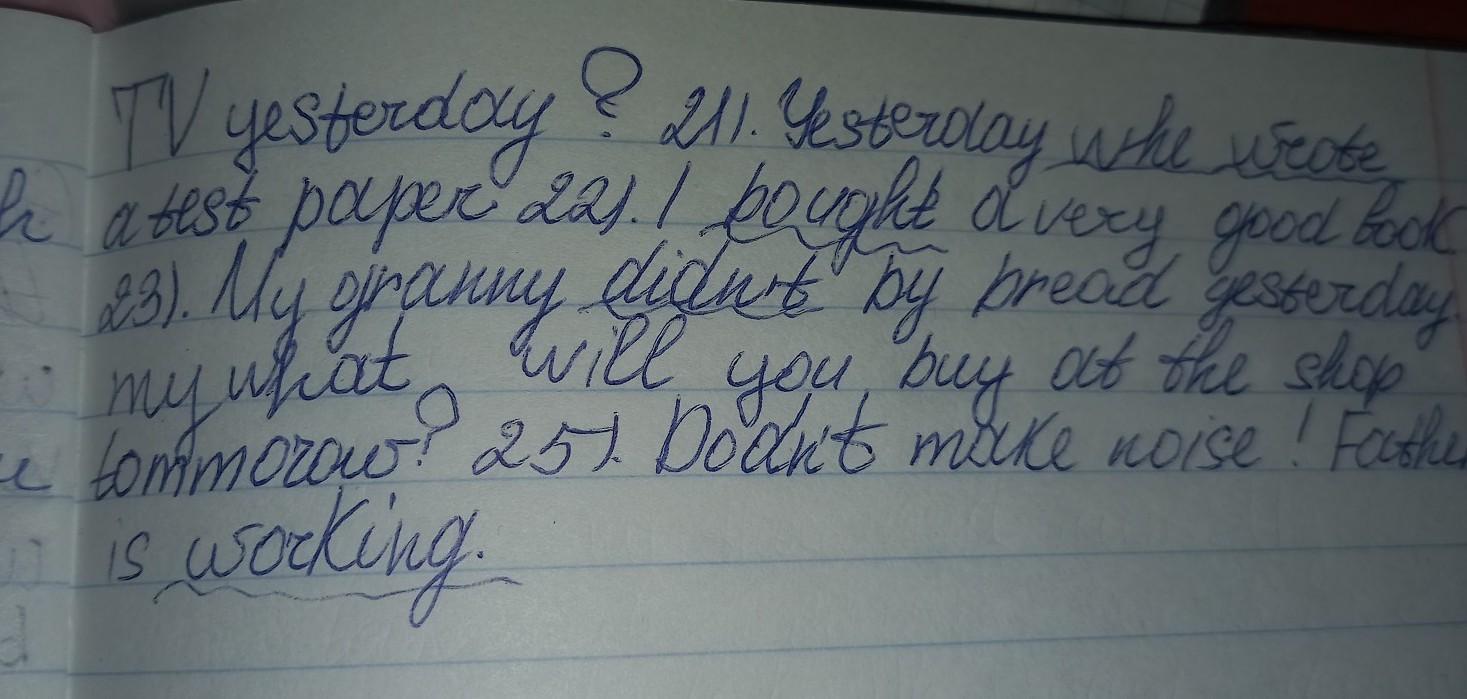 TV yesterday? 21). Yesterday whe wrote
a test paper 22). I bought a very good book
23). My granny didn't by bread yesterday
my what will you buy at the shop
tommorow? 25). Dodn't make noise! Father
is working.